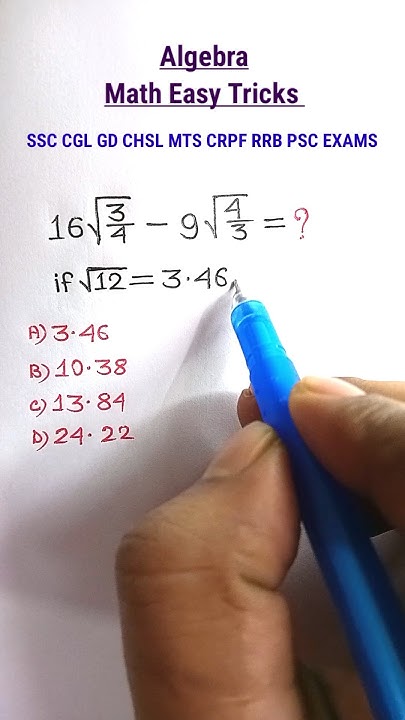 Algebra
Math Easy Tricks
SSC CGL GD CHSL MTS CRPF RRB PSC EXAMS
16√(3/4) − 9√(4/3) = ?
if √12 = 3·46
A) 3·46
B) 10·38
C) 13·84
D) 24·22